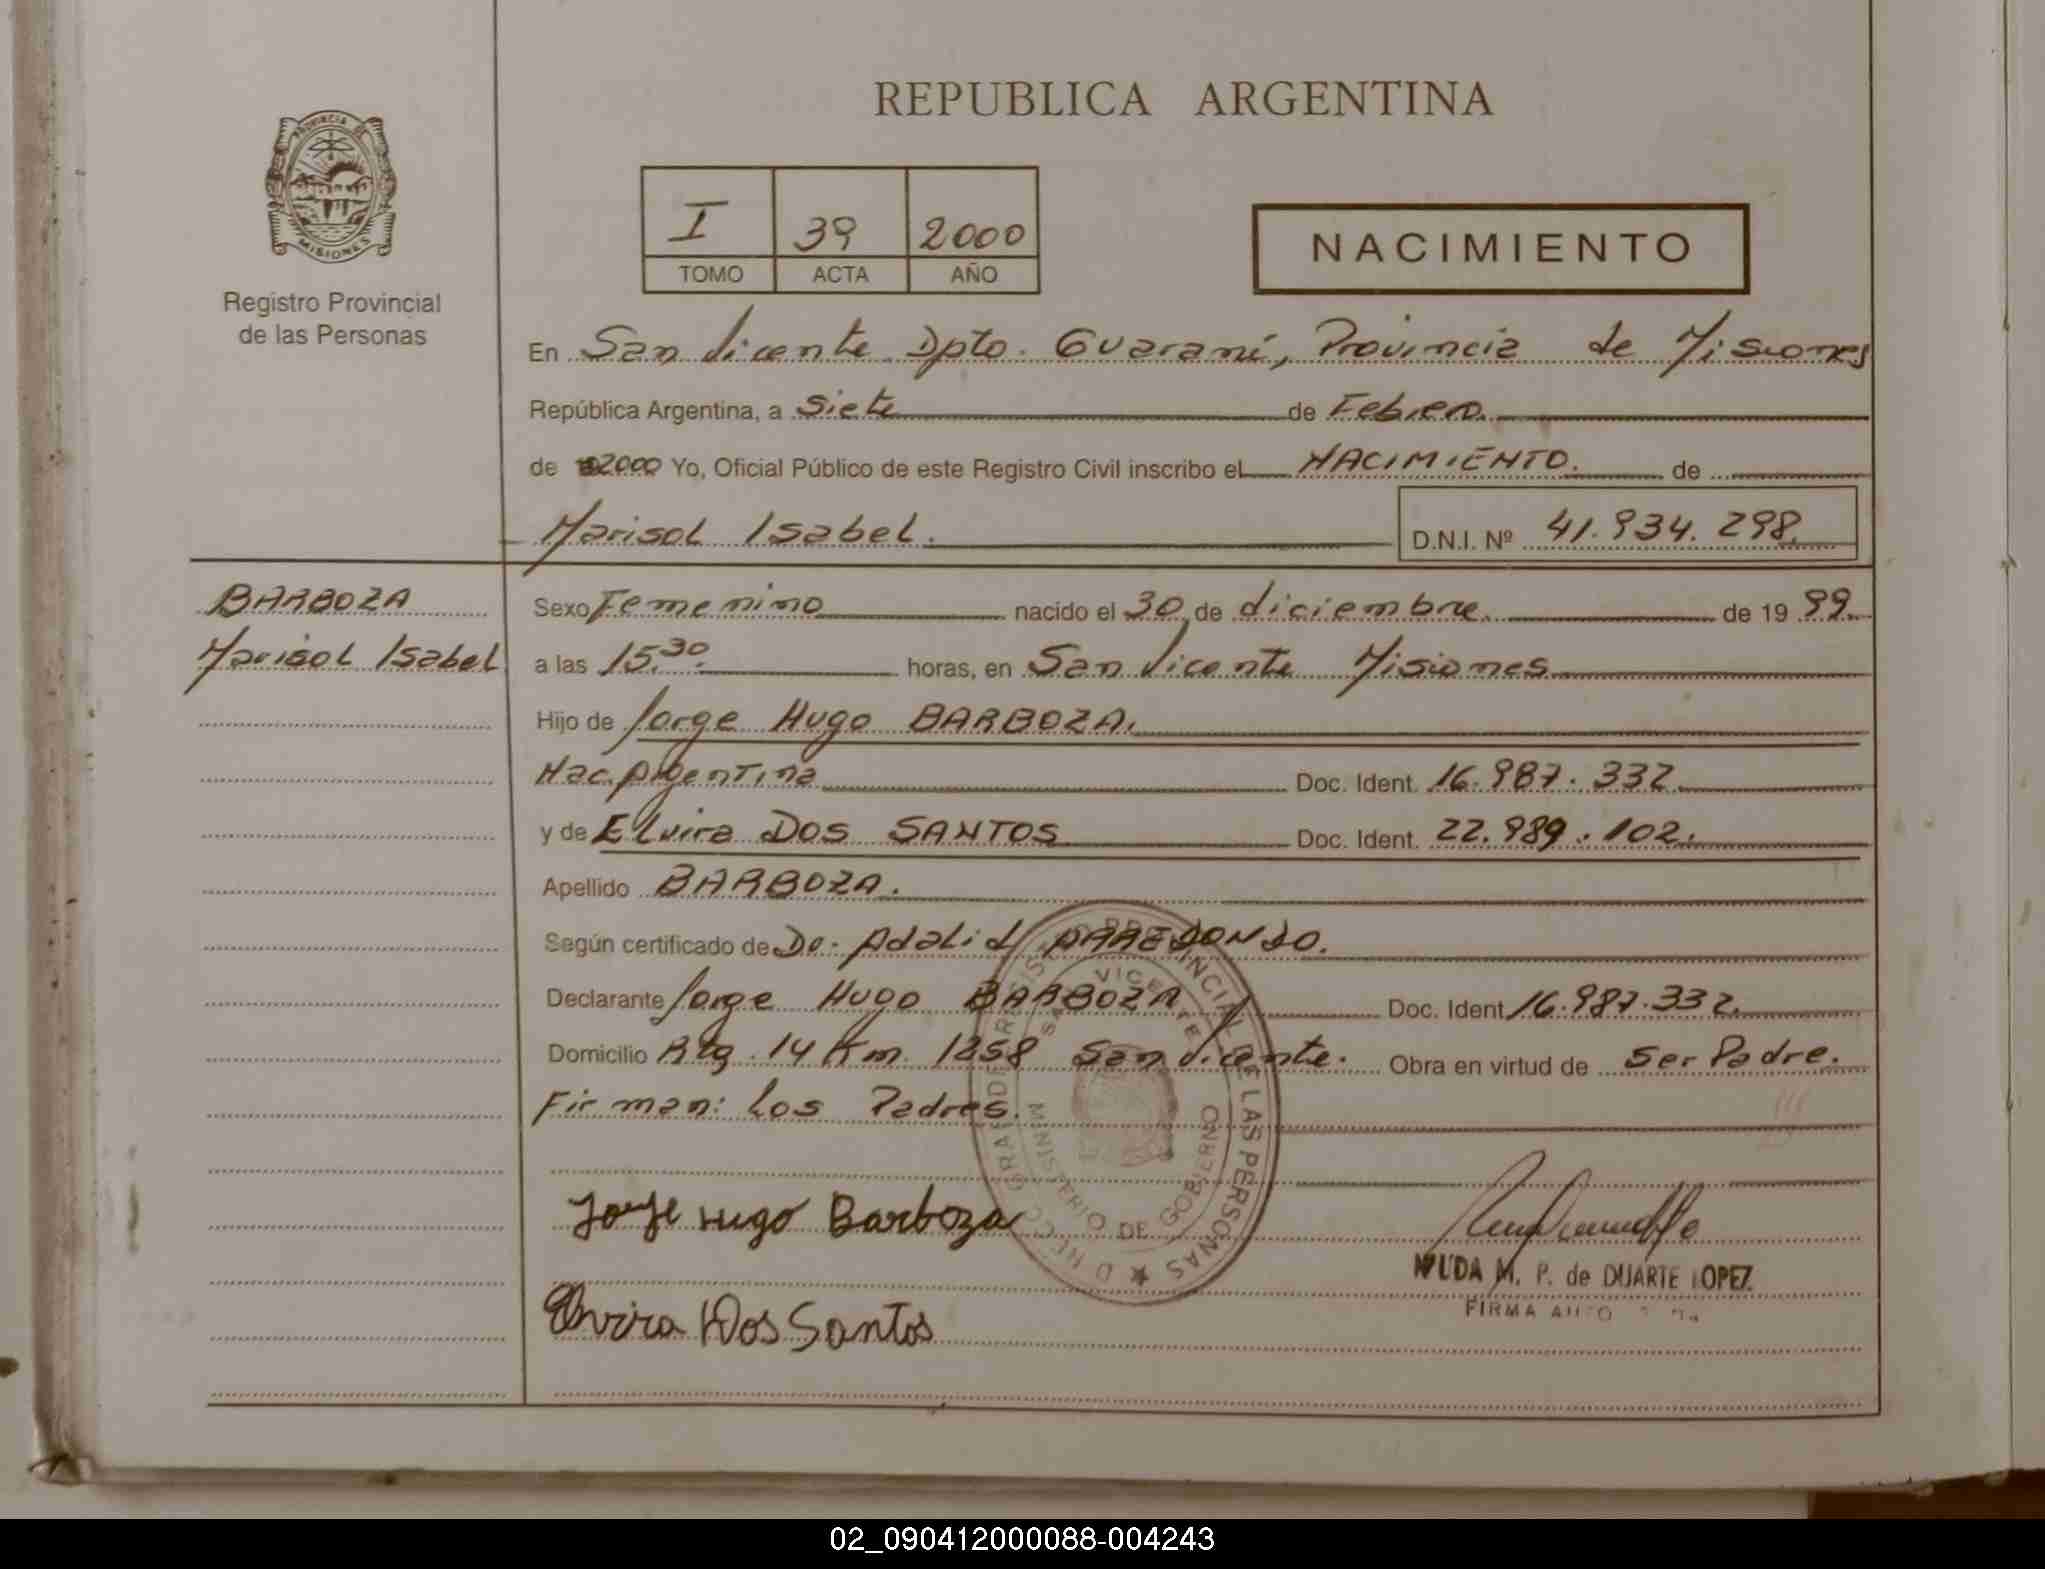 REPUBLICA ARGENTINA
PROVINCIA DE
MISIONES
Registro Provincial
de las Personas
I 39 2000
TOMO ACTA AÑO
NACIMIENTO
En San Vicente Dpto. Guaraní, Provincia de Misiones
República Argentina, a Siete de Febrero.
de 2000 Yo, Oficial Público de este Registro Civil inscribo el NACIMIENTO. de
Marisol Isabel. D.N.I. Nº 41.934.298.
BARBOZA
Marisol Isabel
Sexo Femenino nacido el 30 de diciembre. de 19 99.
a las 15.30. horas, en San Vicente Misiones
Hijo de Jorge Hugo BARBOZA.
Nac. Argentina Doc. Ident. 16.987.332.
y de Elvira DOS SANTOS Doc. Ident. 22.989.102.
Apellido BARBOZA.
Según certificado de Do. Adalid ARREDONDO.
Declarante Jorge Hugo BARBOZA Doc. Ident 16.987.332.
Domicilio Ruta 14 Km. 1258 San Vicente. Obra en virtud de Ser Padre.
Firman: Los Padres.
REGISTRO PROVINCIAL DE LAS PERSONAS
SAN VICENTE
MINISTERIO DE GOBIERNO
Jorge Hugo Barboza
M. P. de DUARTE LOPEZ
FIRMA
Elvira Dos Santos
02_090412000088-004243